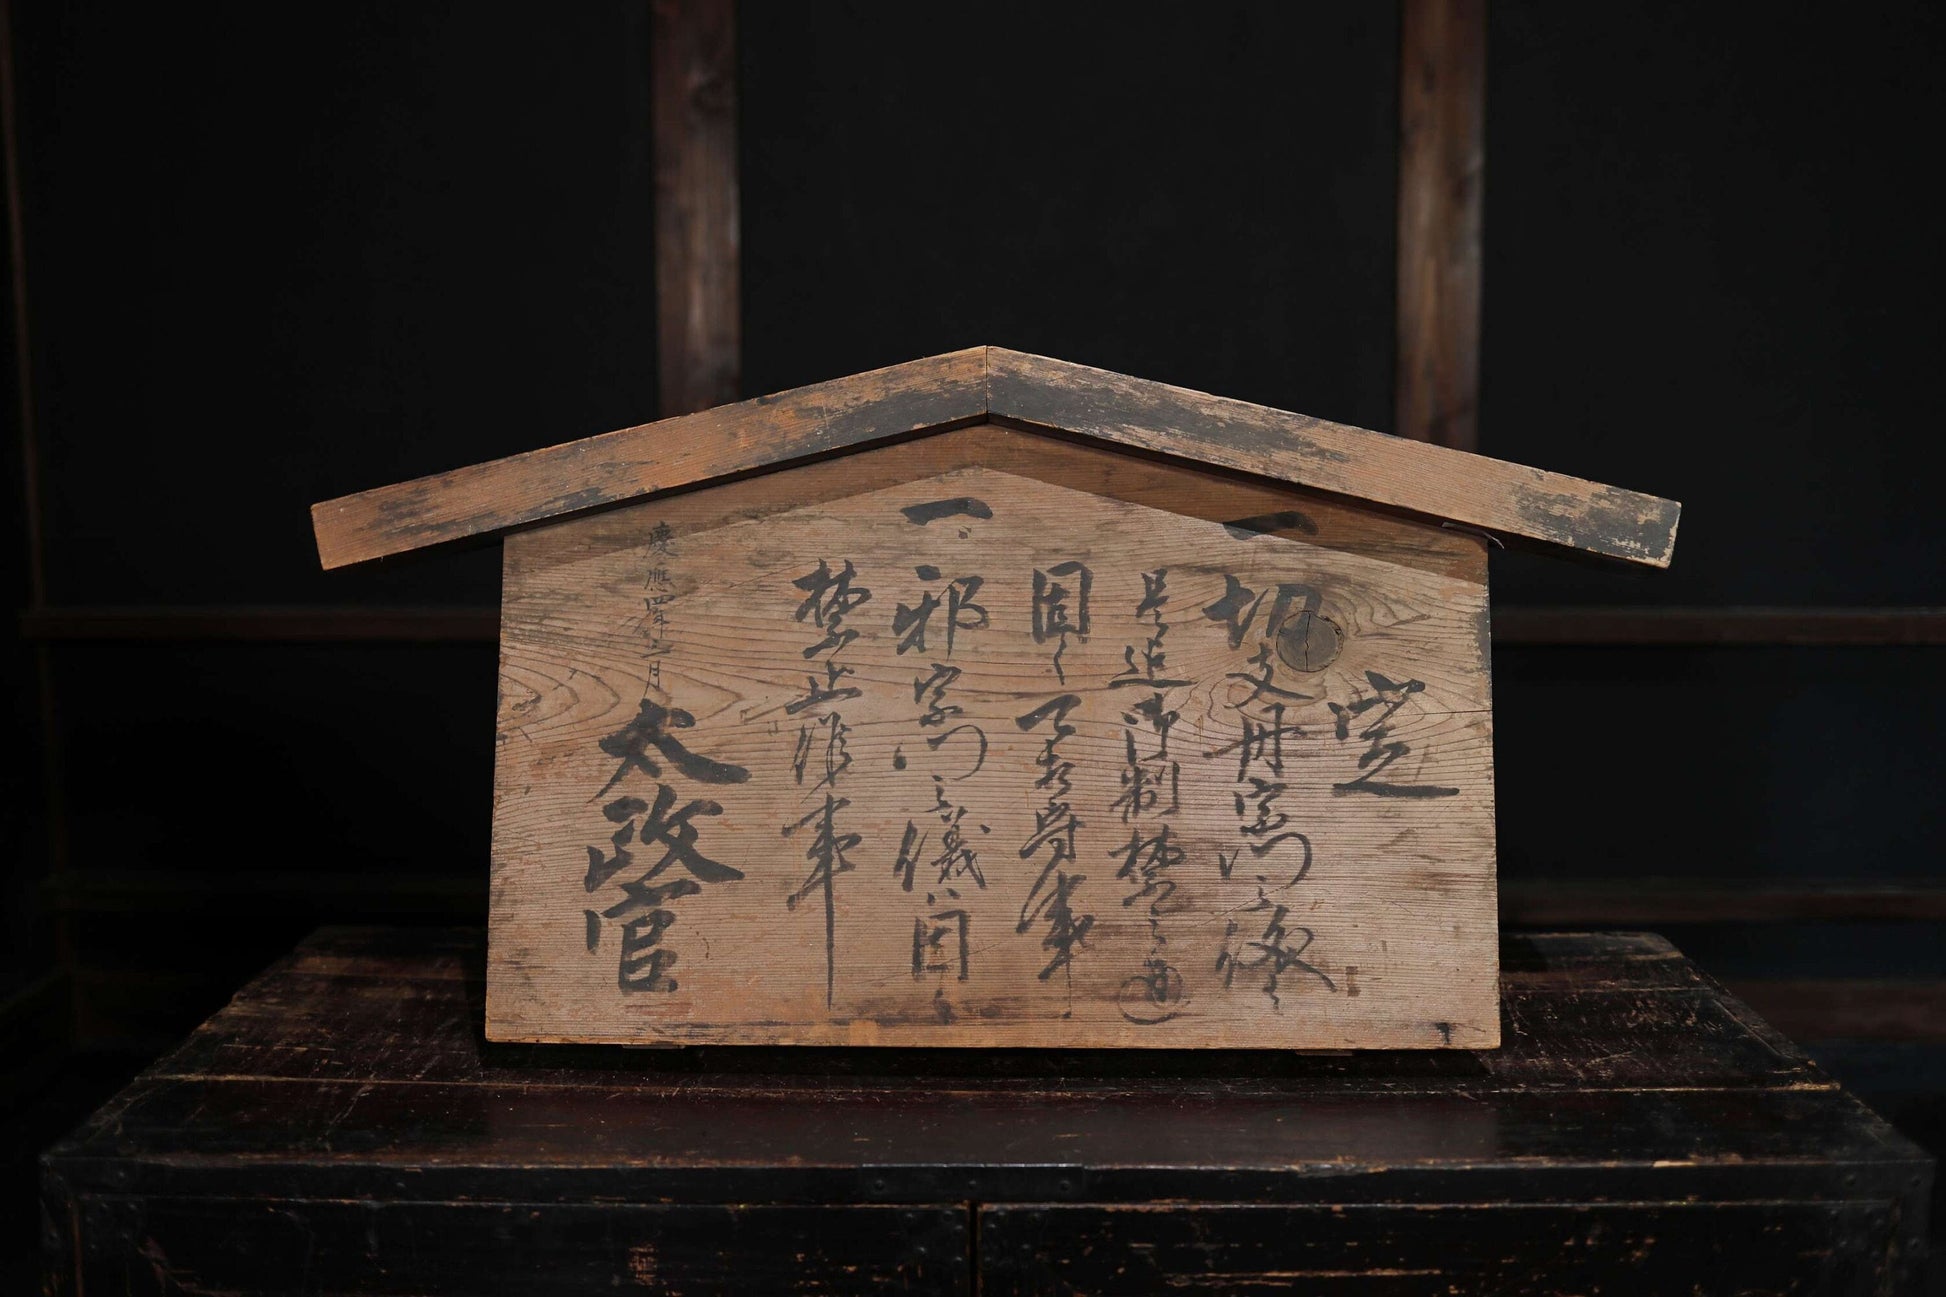 定
一 切支丹宗門之儀ハ
是迄御制禁之通
固く可相守事
一 邪宗門之儀ハ固く
禁止候事
慶應四年三月
太政官